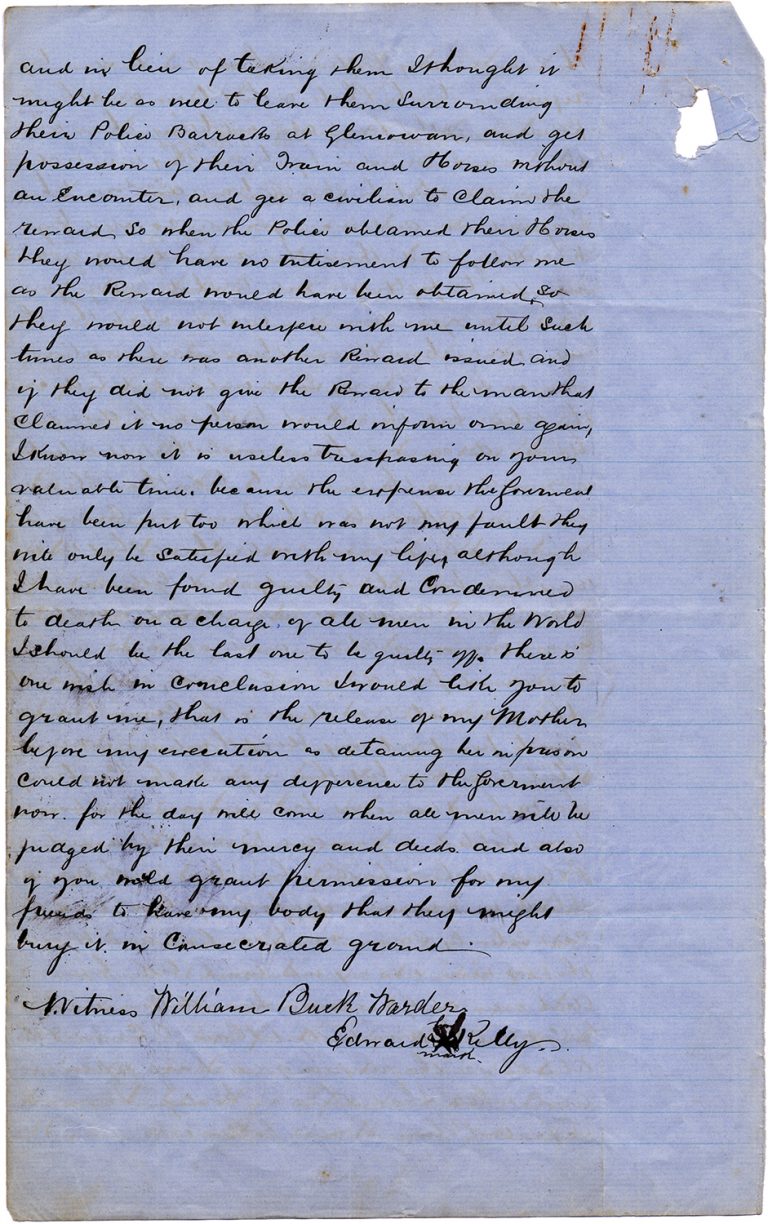 and in lieu of taking them I thought it
might be as well to leave them Surrounding
their Police Barracks at Glenrowan, and get
possession of their Train and Horses without
an Encounter, and get a civilian to Claim the
reward, So when the Police obtained their Horses
they would have no intisement to follow me
as the Reward would have been obtained, So
they would not interfere with me until Such
times as there was another Reward issued and
if they did not give the Reward to the man that
Claimed it no person would inform on me again,
I know now it is useless trespassing on your
valuable time. because the expense the Goverment
have been put too which was not my fault they
will only be Satisfied with my life, although
I have been found guilty and Condemned
to death on a charge of all men in the World
I should be the last one to be guilty off. there is
one wish in conclusion I would like you to
grant me, that is the release of my Mother
before my execution as detaining her in prison
Could not make any difference to the Goverment
now. for the day will come when all men will be
judged by their mercy and deeds. and also
if you would grant permission for my
friends to have my body that they might
bury it in Consecrated ground.
Witness William Buck Warder
Edward Kelly
mark.